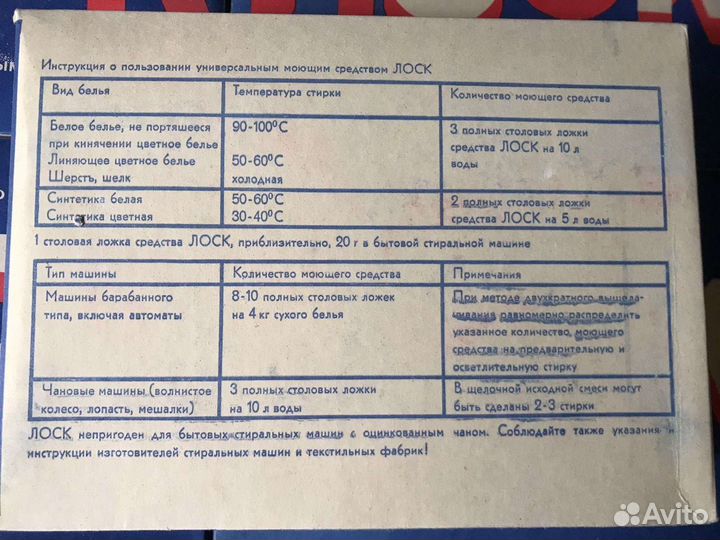 Инструкция о пользовании универсальным моющим средством ЛОСК
Вид белья Температура стирки Количество моющего средства
Белое белье, не портяшееся 90-100°C 3 полных столовых ложки
при кинячении цветное белье средства ЛОСК на 10 л
Линяющее цветное белье 50-60°C воды
Шерсть, шелк холодная
Синтетика белая 50-60°C 2 полных столовых ложки
Синтетика цветная 30-40°C средства ЛОСК на 5 л воды
1 столовая ложка средства ЛОСК, приблизительно, 20 г в бытовой стиральной машине
Тип машины Количество моющего средства Примечания
Машины барабанного 8-10 полных столовых ложек При методе двухкратного выщела-
типа, включая автоматы на 4 кг сухого белья чивания равномерно распределить
указанное количество, моющего
средства на предварительную и
осветлительную стирку
Чановые машины (волнистое 3 полных столовых ложки В щелочной исходной смеси могут
колесо, лопасть, мешалки) на 10 л воды быть сделаны 2-3 стирки
ЛОСК непригоден для бытовых стиральных машин с оцинкованным чаном. Соблюдайте также указания и
инструкции изготовителей стиральных машин и текстильных фабрик!
Avito